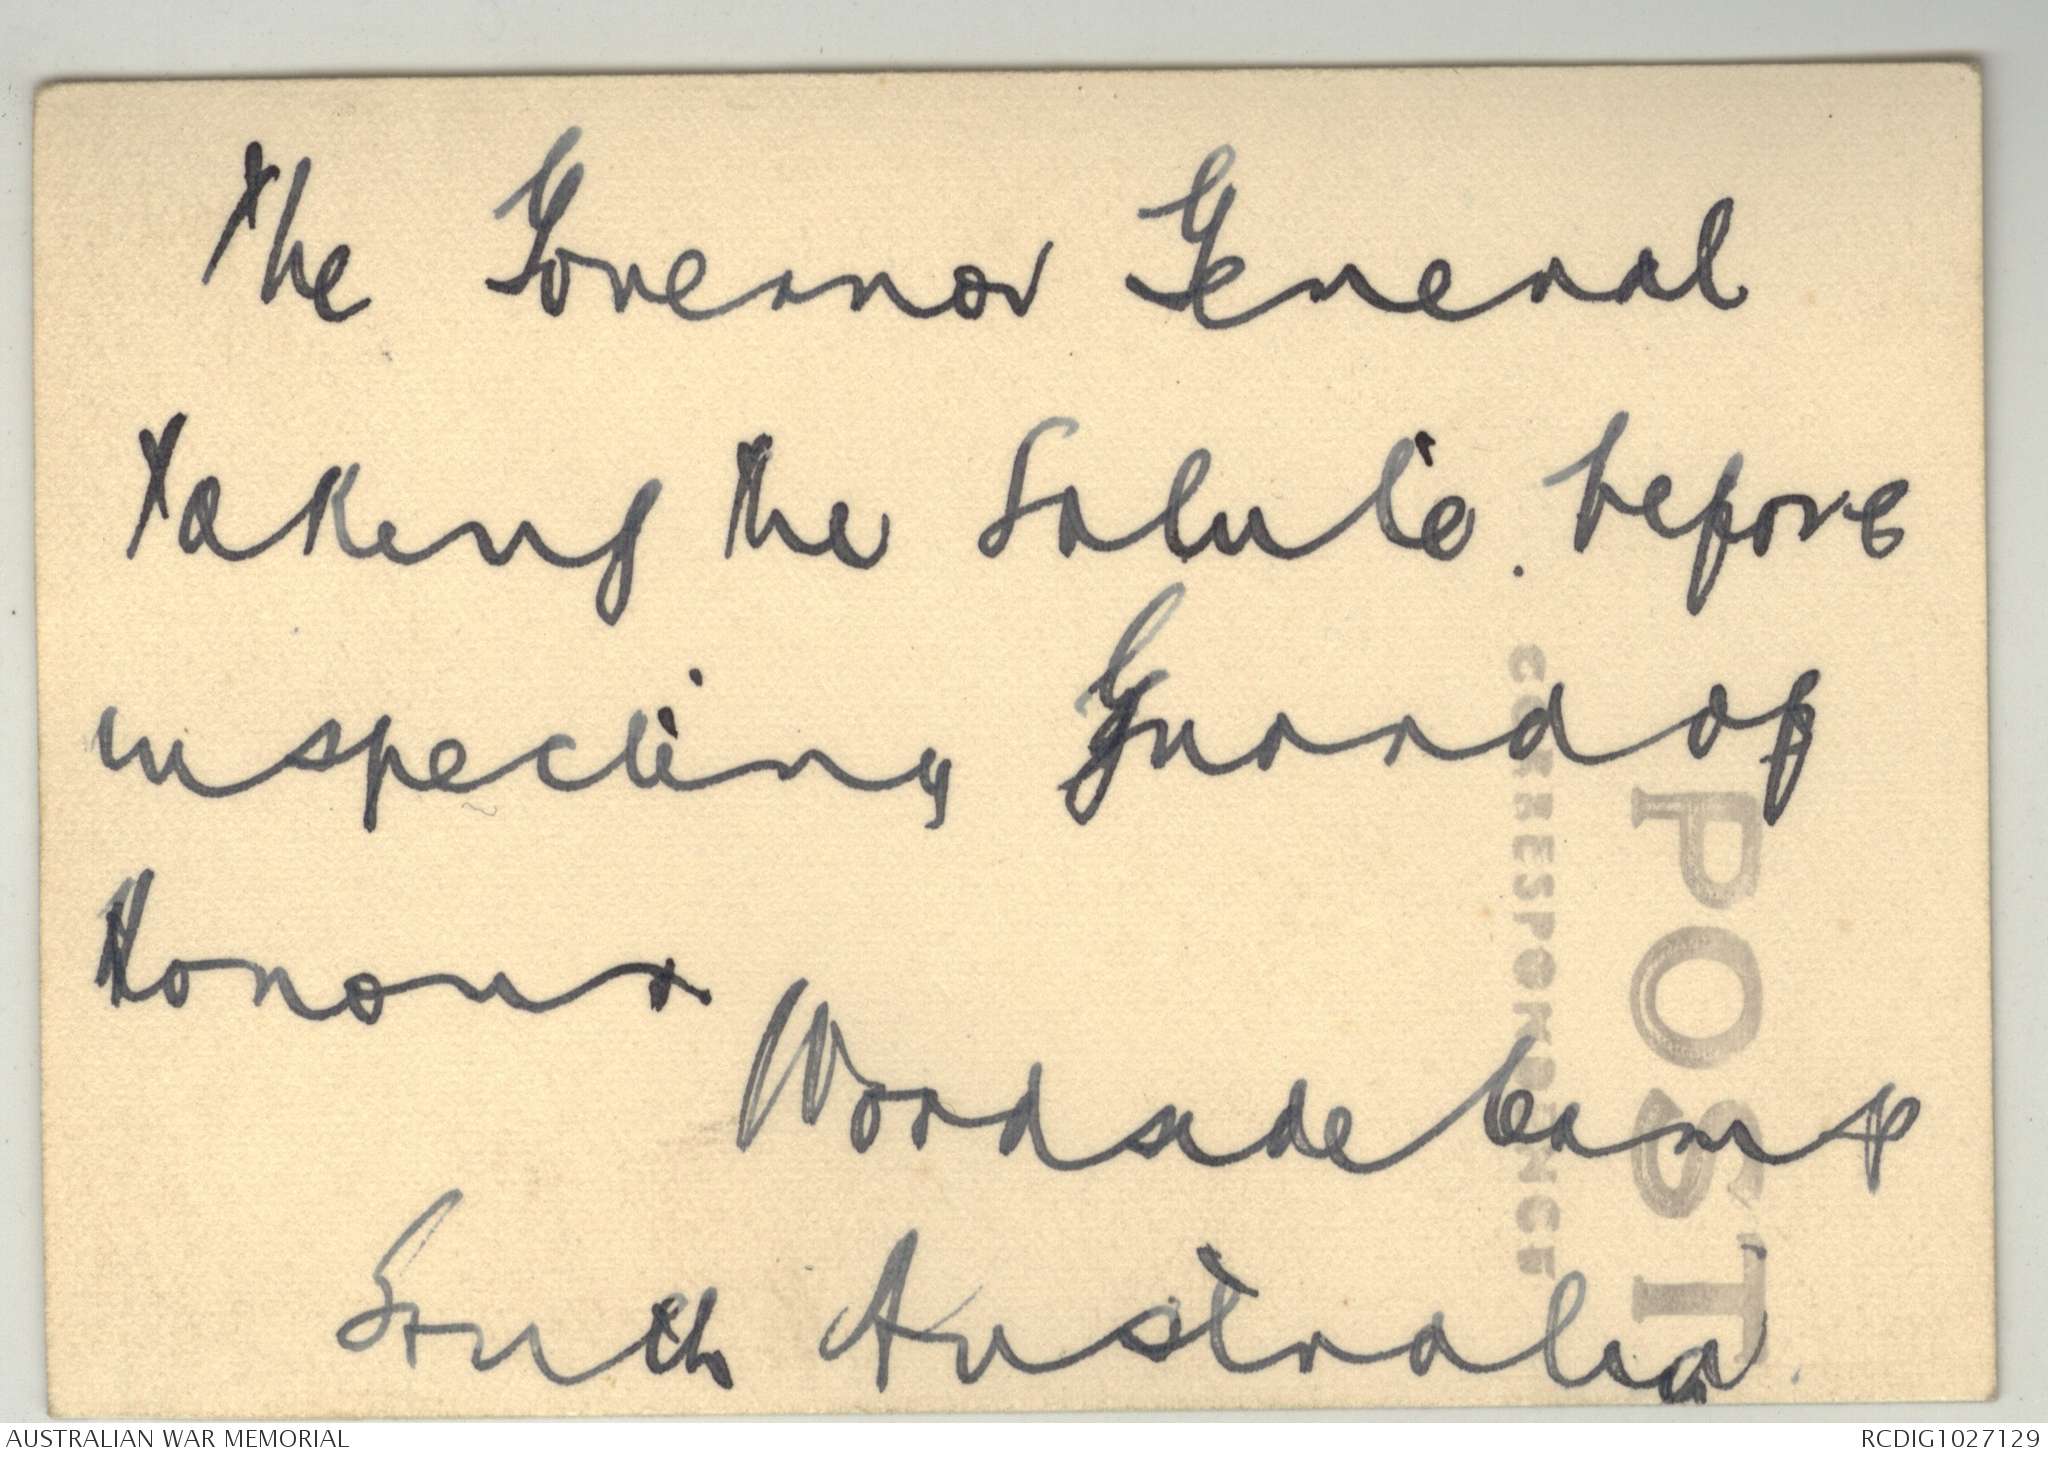 The Governor General
taking the Salute. before
inspecting Guard of
Honour
Woodside Camp
South Australia.
POST
CORRESPONDENCE
AUSTRALIAN WAR MEMORIAL
RCDIG1027129